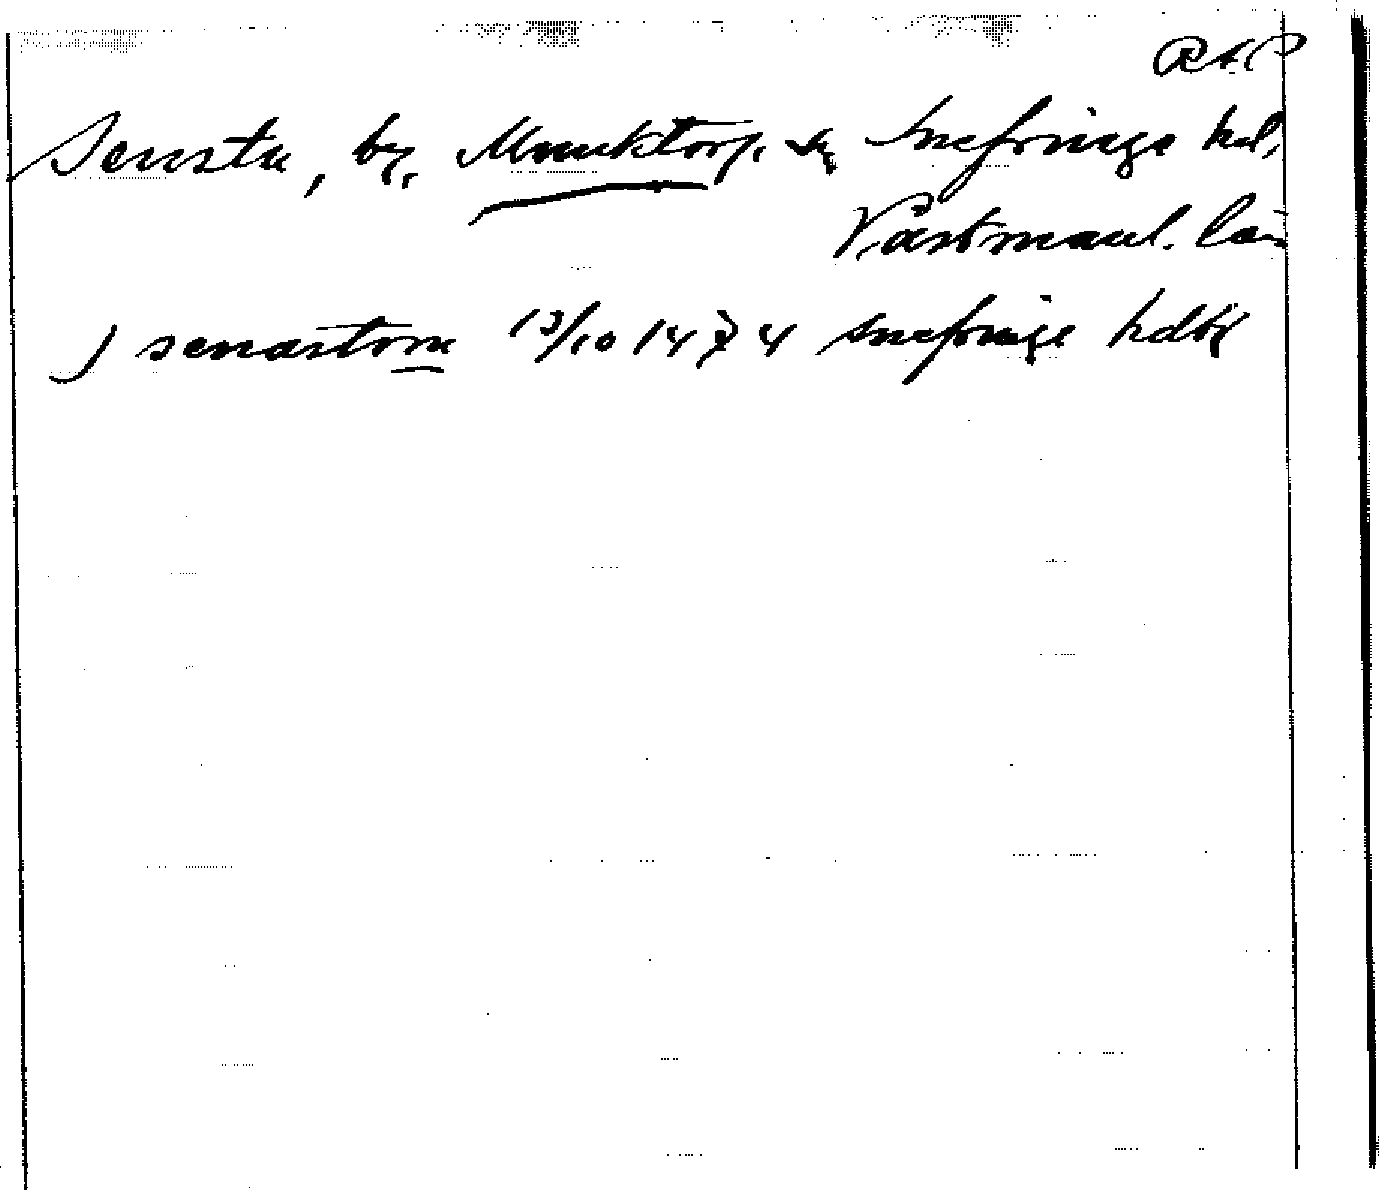 RAP
Sensta, by, Munktorp, sn Snefringe hd,
Västmanl. län
J senastom 13/10 1474 Snefringe hdbr